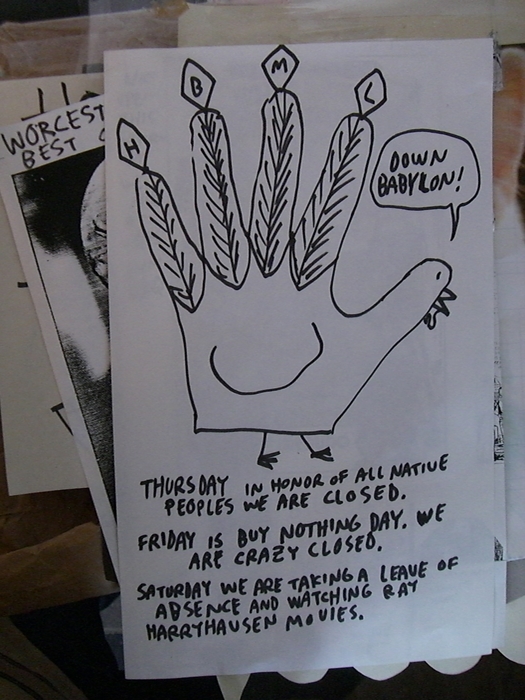 H B M L
DOWN
BABYLON!
WORCEST
BEST
THURSDAY IN HONOR OF ALL NATIVE
PEOPLES WE ARE CLOSED.
FRIDAY IS BUY NOTHING DAY. WE
ARE CRAZY CLOSED.
SATURDAY WE ARE TAKING A LEAVE OF
ABSENCE AND WATCHING RAY
HARRYHAUSEN MOVIES.